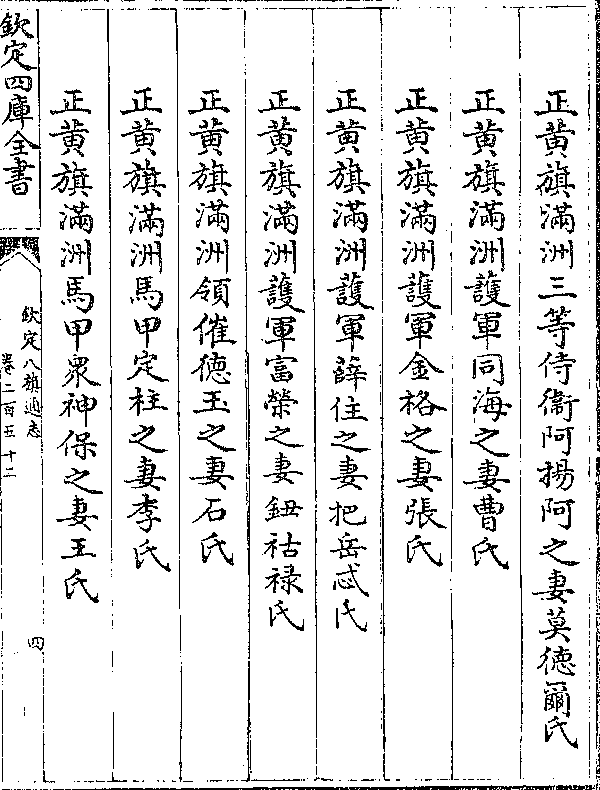 正黄旗滿洲三等侍衞阿揚阿之妻莫德爾氏
正黄旗滿洲護軍同海之妻曹氏
正黄旗滿洲護軍金格之妻張氏
正黄旗滿洲護軍薛住之妻把岳忒氏
正黄旗滿洲護軍富榮之妻鈕祜禄氏
正黄旗滿洲領催德玉之妻石氏
正黄旗滿洲馬甲定柱之妻李氏
正黄旗滿洲馬甲衆神保之妻王氏
欽定四庫全書
欽定八旗通志
卷二百五十二
四